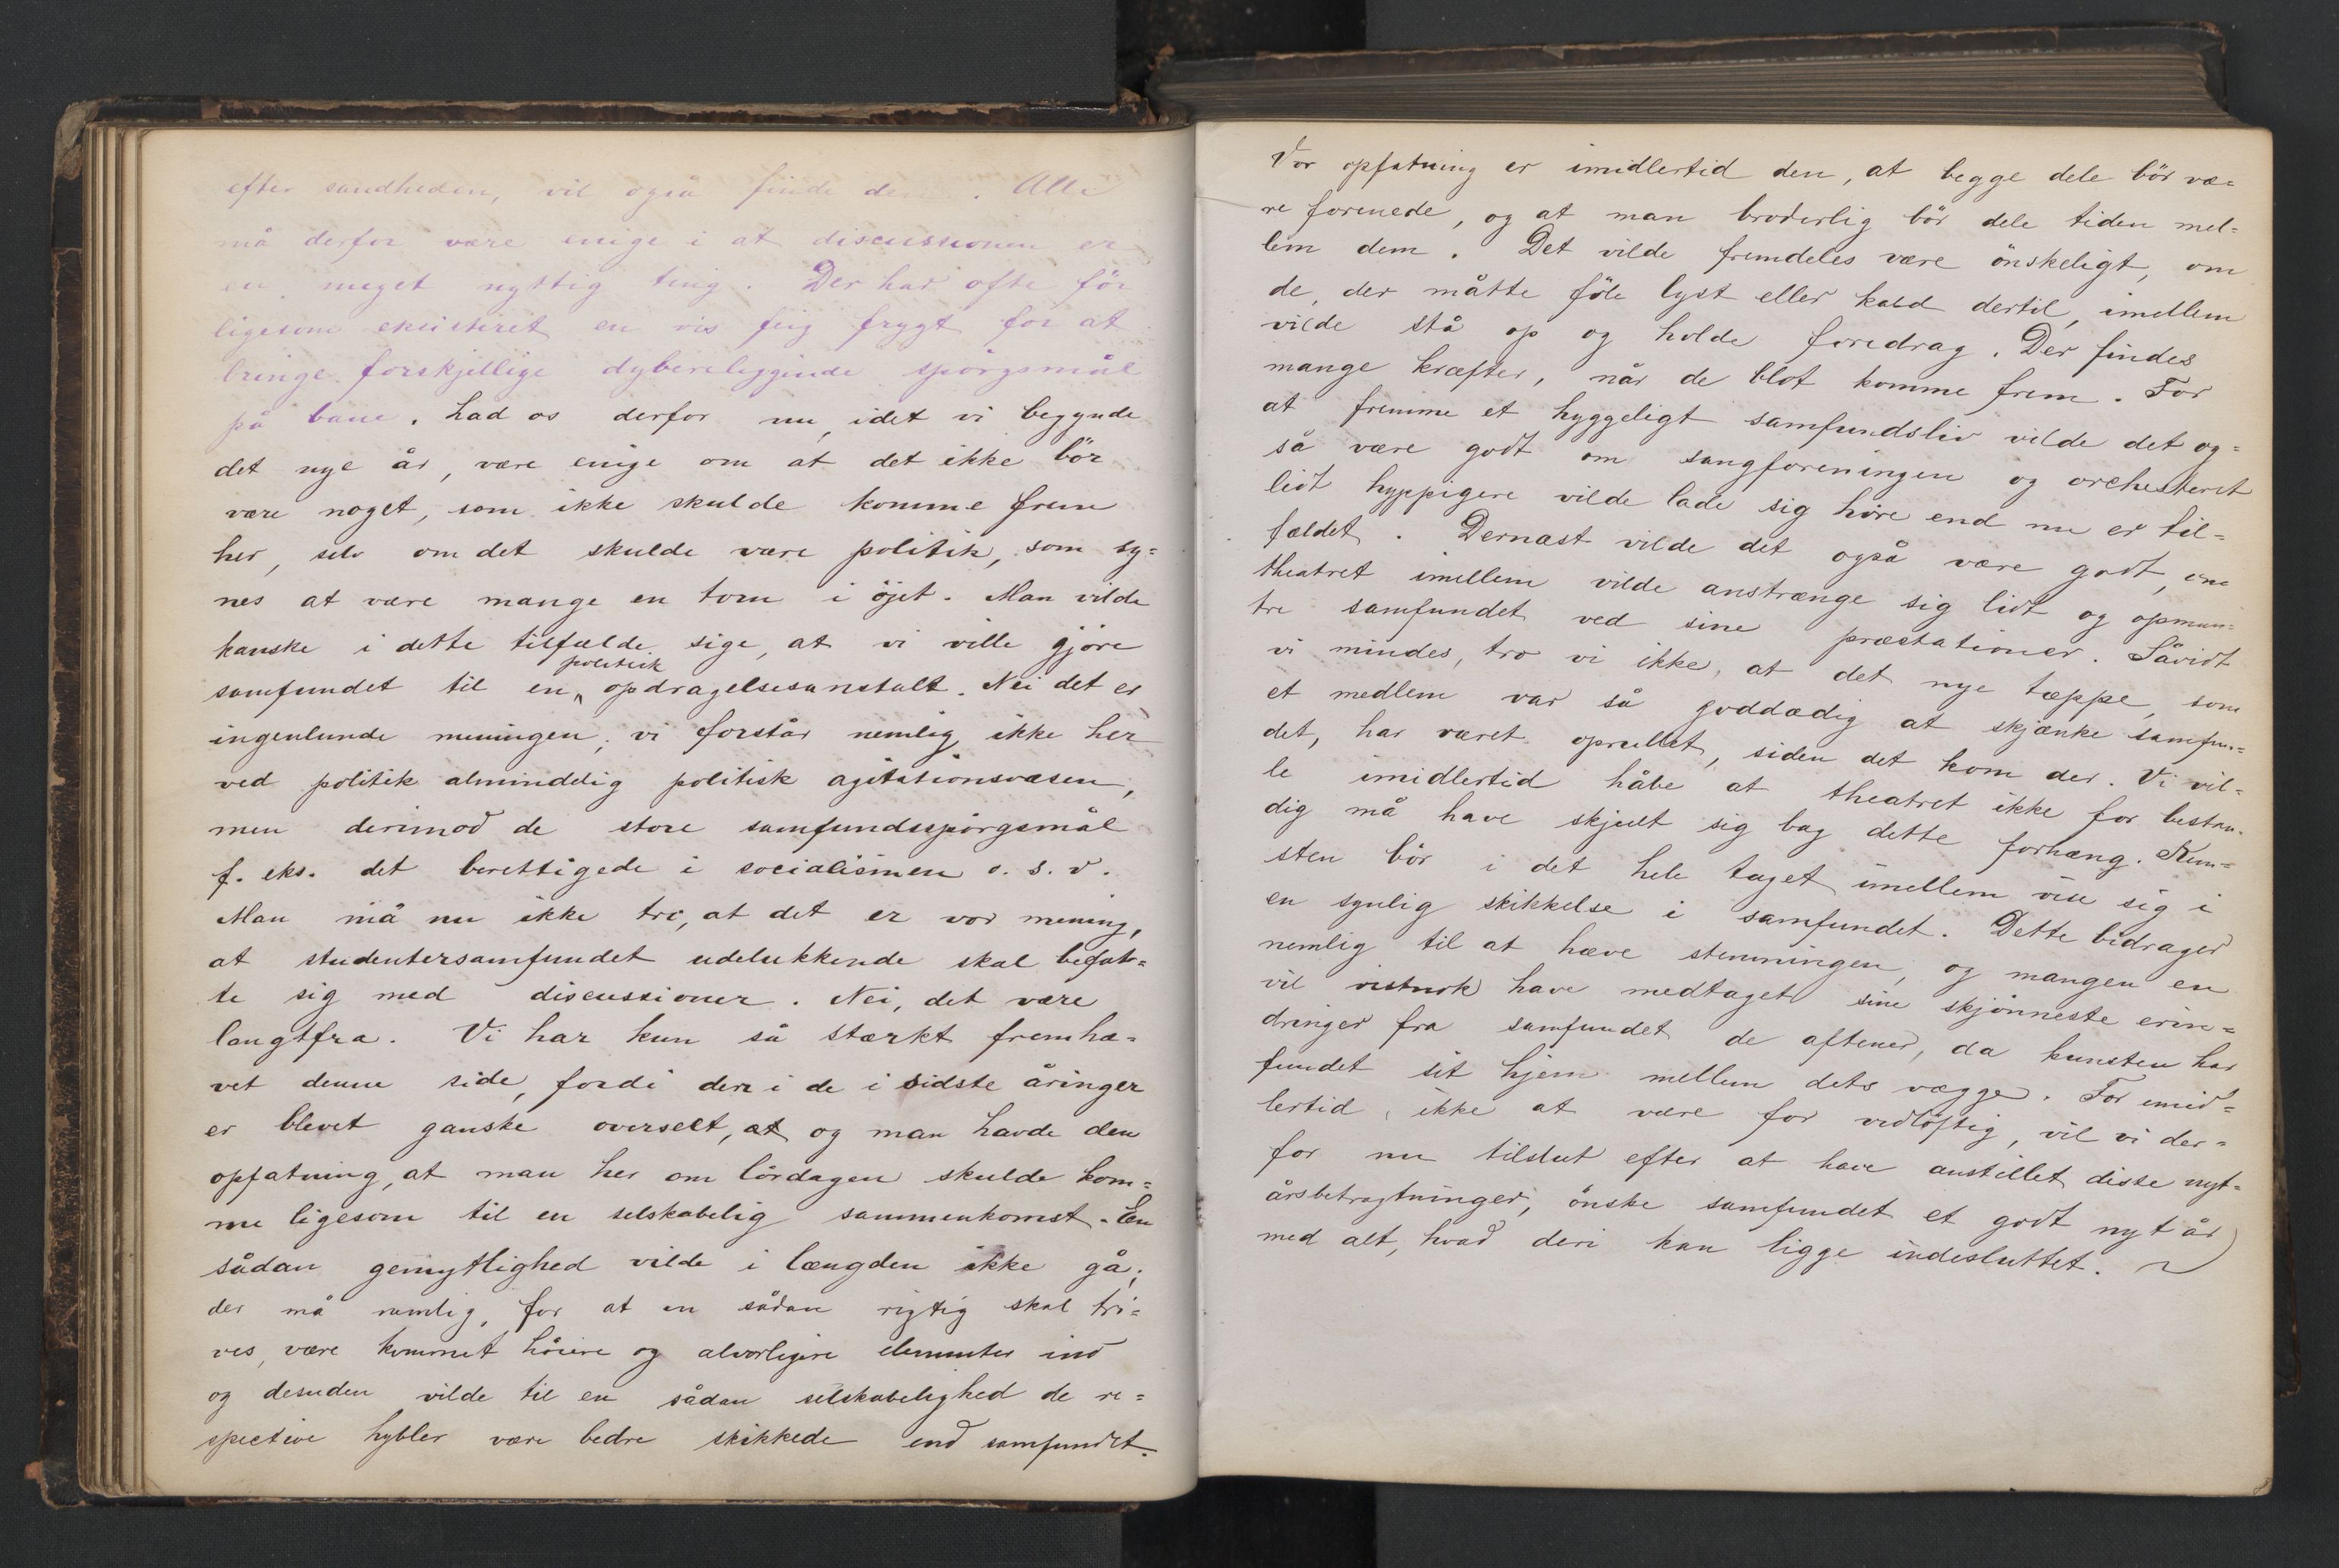 efter sandheden, vil også finde den. Alle
må derfor være enige i at discussionen er
en meget nyttig ting. Der har ofte før
ligesom eksisteret en vis feig frygt for at
bringe forskjellige dybereliggende spörgsmål
på bane. Lad os derfor nu, idet vi begynde
det nye år, være enige om at det ikke bör
være noget, som ikke skulde komme frem
her, selv om det skulde være politik, som sy=
nes at være mange en torn i öjet. Man vilde
kanske i dette tilfælde sige, at vi ville gjöre
samfundet til en politisk opdragelsesanstalt. Nei det er
ingenlunde meningen; vi forstår nemlig ikke her
ved politik almindelig politisk agitationsvæsen,
men derimod de store samfundsspörgsmål
f. eks. det berettigede i socialismen o. s. v.
Man må nu ikke tro, at det er vor mening,
at studentersamfundet udelukkende skal befat=
te sig med discussioner. Nei, det være
langtfra. Vi har kun så stærkt fremhæ=
vet denne side, fordi den i de i sidste åringer
er blevet ganske overseet, at og man havde den
opfatning, at man her om lördagen skulde kom=
me ligesom til en selskabelig sammenkomst. En
sådan gemytlighed vilde i længden ikke gå;
der må nemlig, for at en sådan rigtig skal tri=
ves, være kommet höiere og alvorligere elementer ind
og desuden vilde til en sådan selskabelighed de re=
spective hybler være bedre skikkede end samfundet.
Vor opfatning er imidlertid den, at begge dele bör væ=
re forenede, og at man broderlig bör dele tiden mel=
lem dem. Det vilde fremdeles være önskeligt, om
de, der måtte föle lyst eller kald dertil, imellem
vilde stå op og holde foredrag. Der findes
mange kræfter, når de blot komme frem. For
at fremme et hyggeligt samfundsliv vilde det og=
så være godt om sangforeningen og orchesteret
lidt hyppigere vilde lade sig höre end nu er til=
fældet. Dernæst vilde det også være godt, om
theatret imellem vilde anstrænge sig lidt og opmun=
tre samfundet ved sine præstationer. Såvidt
vi mindes, tro vi ikke, at det nye tæppe, som
et medlem var så goddædig at skjænke samfun=
det, har været oprullet, siden det kom der. Vi vil=
le imidlertid håbe at theatret ikke for bestan=
dig må have skjult sig bag dette forhæng. Kun=
sten bör i det hele taget imellem vise sig i
en synlig skikkelse i samfundet. Dette bidrager
nemlig til at hæve stemningen, og mangen en
vil vistnok have medtaget sine skjönneste erin=
dringer fra samfundet de aftener, da kunsten har
fundet sit hjem mellem dets vægge. For imid=
lertid ikke at være for vidlöftig, vil vi der=
for nu tilslut efter at have anstillet disse nyt=
årsbetragtninger, önske samfundet et godt nyt år
med alt, hvad deri kan ligge indesluttet.